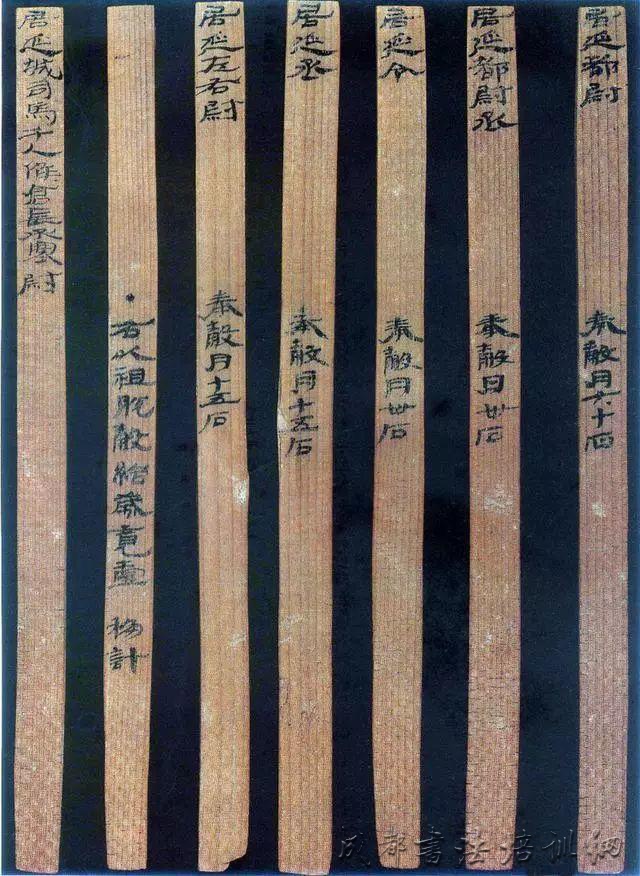 居延都尉 奉穀月六十石
居延都尉丞 奉穀月卅石
居延令 奉穀月卅石
居延丞 奉穀月十五石
居延左右尉 奉穀月十五石
・右以祖脫穀給歲竟壹移計
居延城司馬千人候倉長丞塞尉
成都书法培训网